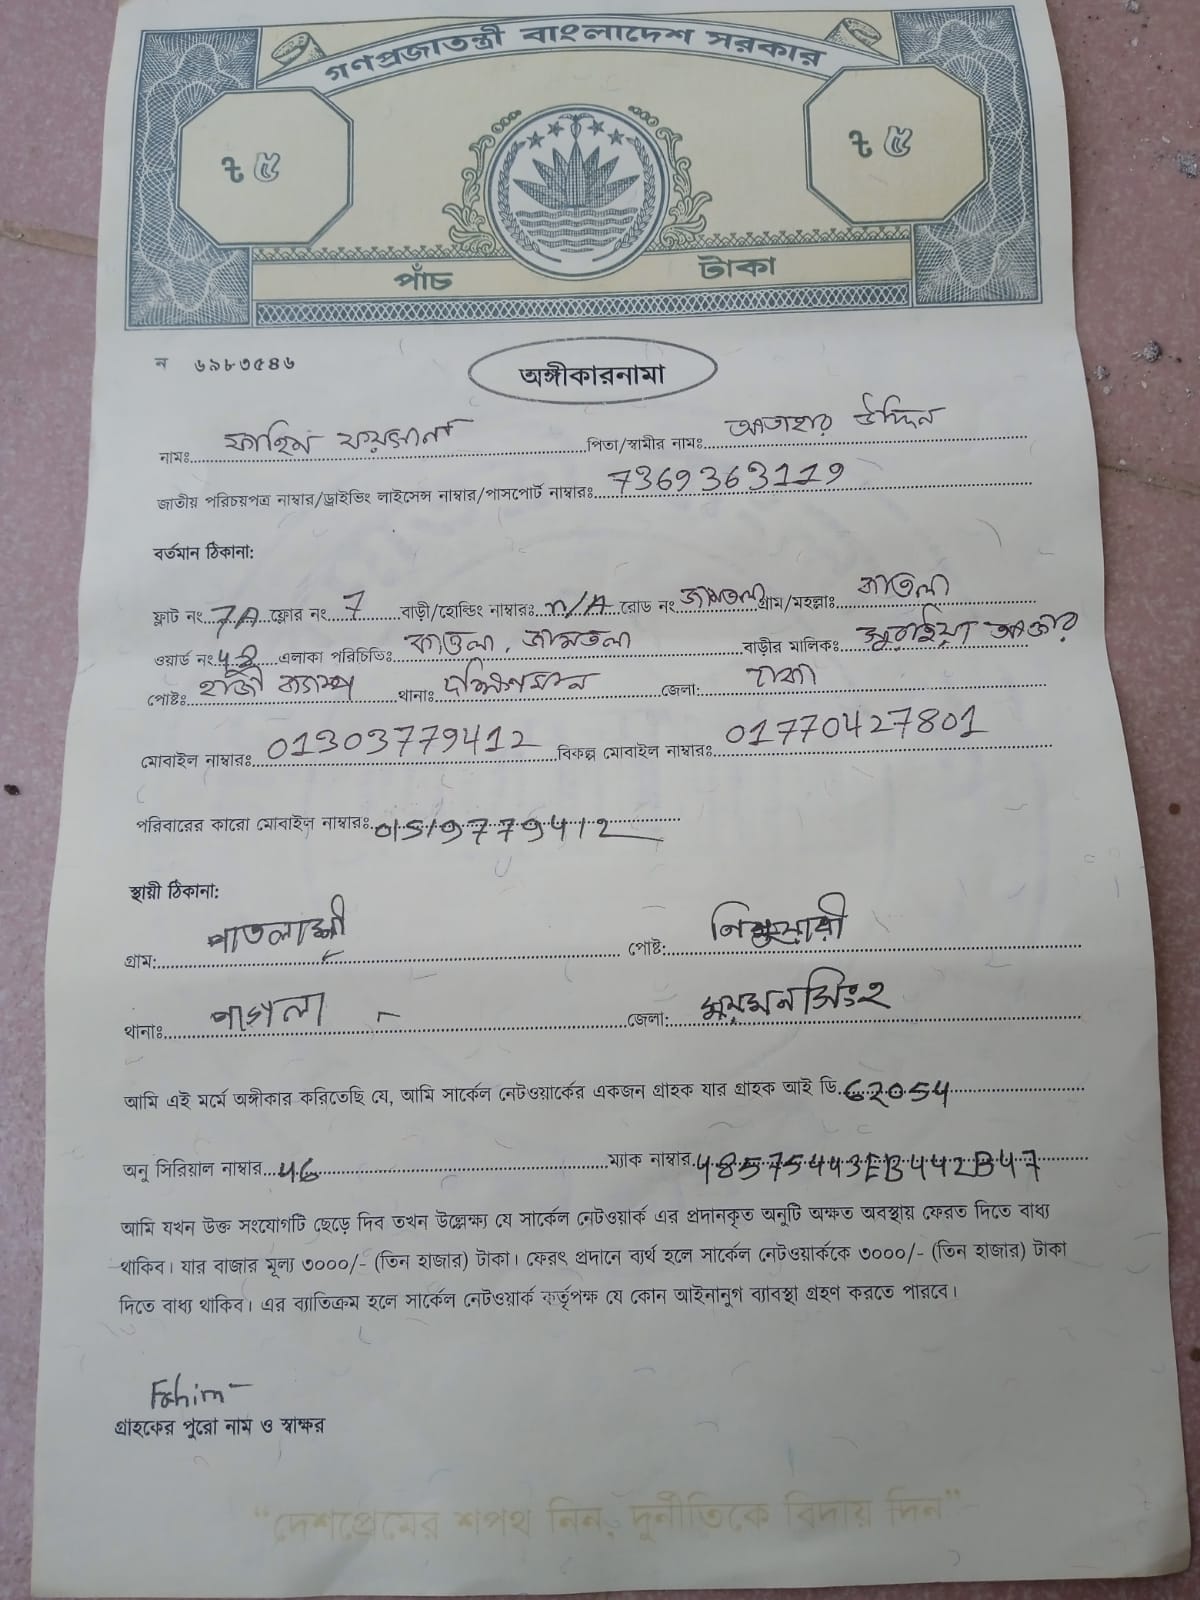 গণপ্রজাতন্ত্রী বাংলাদেশ সরকার
৳ ৫ ৳ ৫
পাঁচ টাকা
ন ৬৯৮৩৫৪৬
অঙ্গীকারনামা
নামঃ ফাহিম ফয়সাল পিতা/স্বামীর নামঃ আজহার উদ্দিন
জাতীয় পরিচয়পত্র নাম্বার/ড্রাইভিং লাইসেন্স নাম্বার/পাসপোর্ট নাম্বারঃ 7369363119
বর্তমান ঠিকানা:
ফ্লাট নং 7A ফ্লোর নং 7 বাড়ী/হোল্ডিং নাম্বারঃ n/A রোড নং জামতলা গ্রাম/মহল্লাঃ কাওলা
ওয়ার্ড নং এলাকা পরিচিতিঃ কাওলা, জামতলা বাড়ীর মালিকঃ সুরাইয়া আক্তার
পোষ্টঃ হাজী ক্যাম্প থানাঃ দক্ষিণখান জেলা: ঢাকা
মোবাইল নাম্বারঃ 01303779412 বিকল্প মোবাইল নাম্বারঃ 01770427801
পরিবারের কারো মোবাইল নাম্বারঃ 01519779412
স্থায়ী ঠিকানা:
গ্রাম: পোষ্ট:
থানাঃ পাগলা জেলা: ময়মনসিংহ
আমি এই মর্মে অঙ্গীকার করিতেছি যে, আমি সার্কেল নেটওয়ার্কের একজন গ্রাহক যার গ্রাহক আই ডি. 62054
অনু সিরিয়াল নাম্বার 46 ম্যাক নাম্বার 48575443EB442B47
আমি যখন উক্ত সংযোগটি ছেড়ে দিব তখন উল্লেক্ষ্য যে সার্কেল নেটওয়ার্ক এর প্রদানকৃত অনুটি অক্ষত অবস্থায় ফেরত দিতে বাধ্য
থাকিব। যার বাজার মূল্য ৩০০০/- (তিন হাজার) টাকা। ফেরৎ প্রদানে ব্যর্থ হলে সার্কেল নেটওয়ার্ককে ৩০০০/- (তিন হাজার) টাকা
দিতে বাধ্য থাকিব। এর ব্যাতিক্রম হলে সার্কেল নেটওয়ার্ক কর্তৃপক্ষ যে কোন আইনানুগ ব্যাবস্থা গ্রহণ করতে পারবে।
Fahim
গ্রাহকের পুরো নাম ও স্বাক্ষর
“দেশপ্রেমের শপথ নিন, দুর্নীতিকে বিদায় দিন”